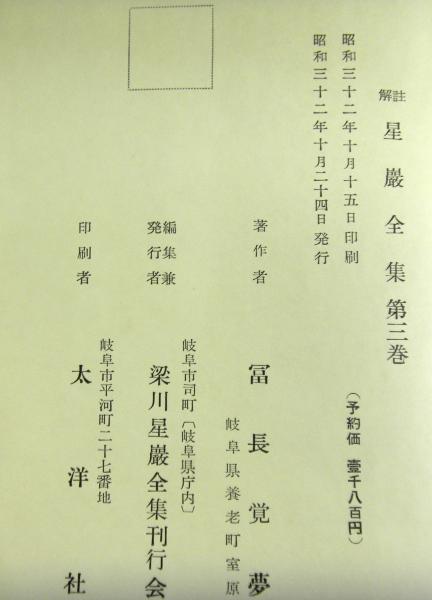 註解 星巖全集 第三巻
(予約価 壹千八百円)
昭和三十二年十月十五日印刷
昭和三十二年十月二十四日発行
著作者
岐阜県養老町室原
冨長覚夢
編集兼
発行者
岐阜市司町〔岐阜県庁内〕
梁川星巖全集刊行会
印刷者
岐阜市平河町二十七番地
太洋社